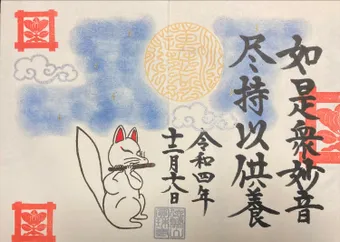 如是衆妙音
尽持以供養
令和四年
十二月十八日